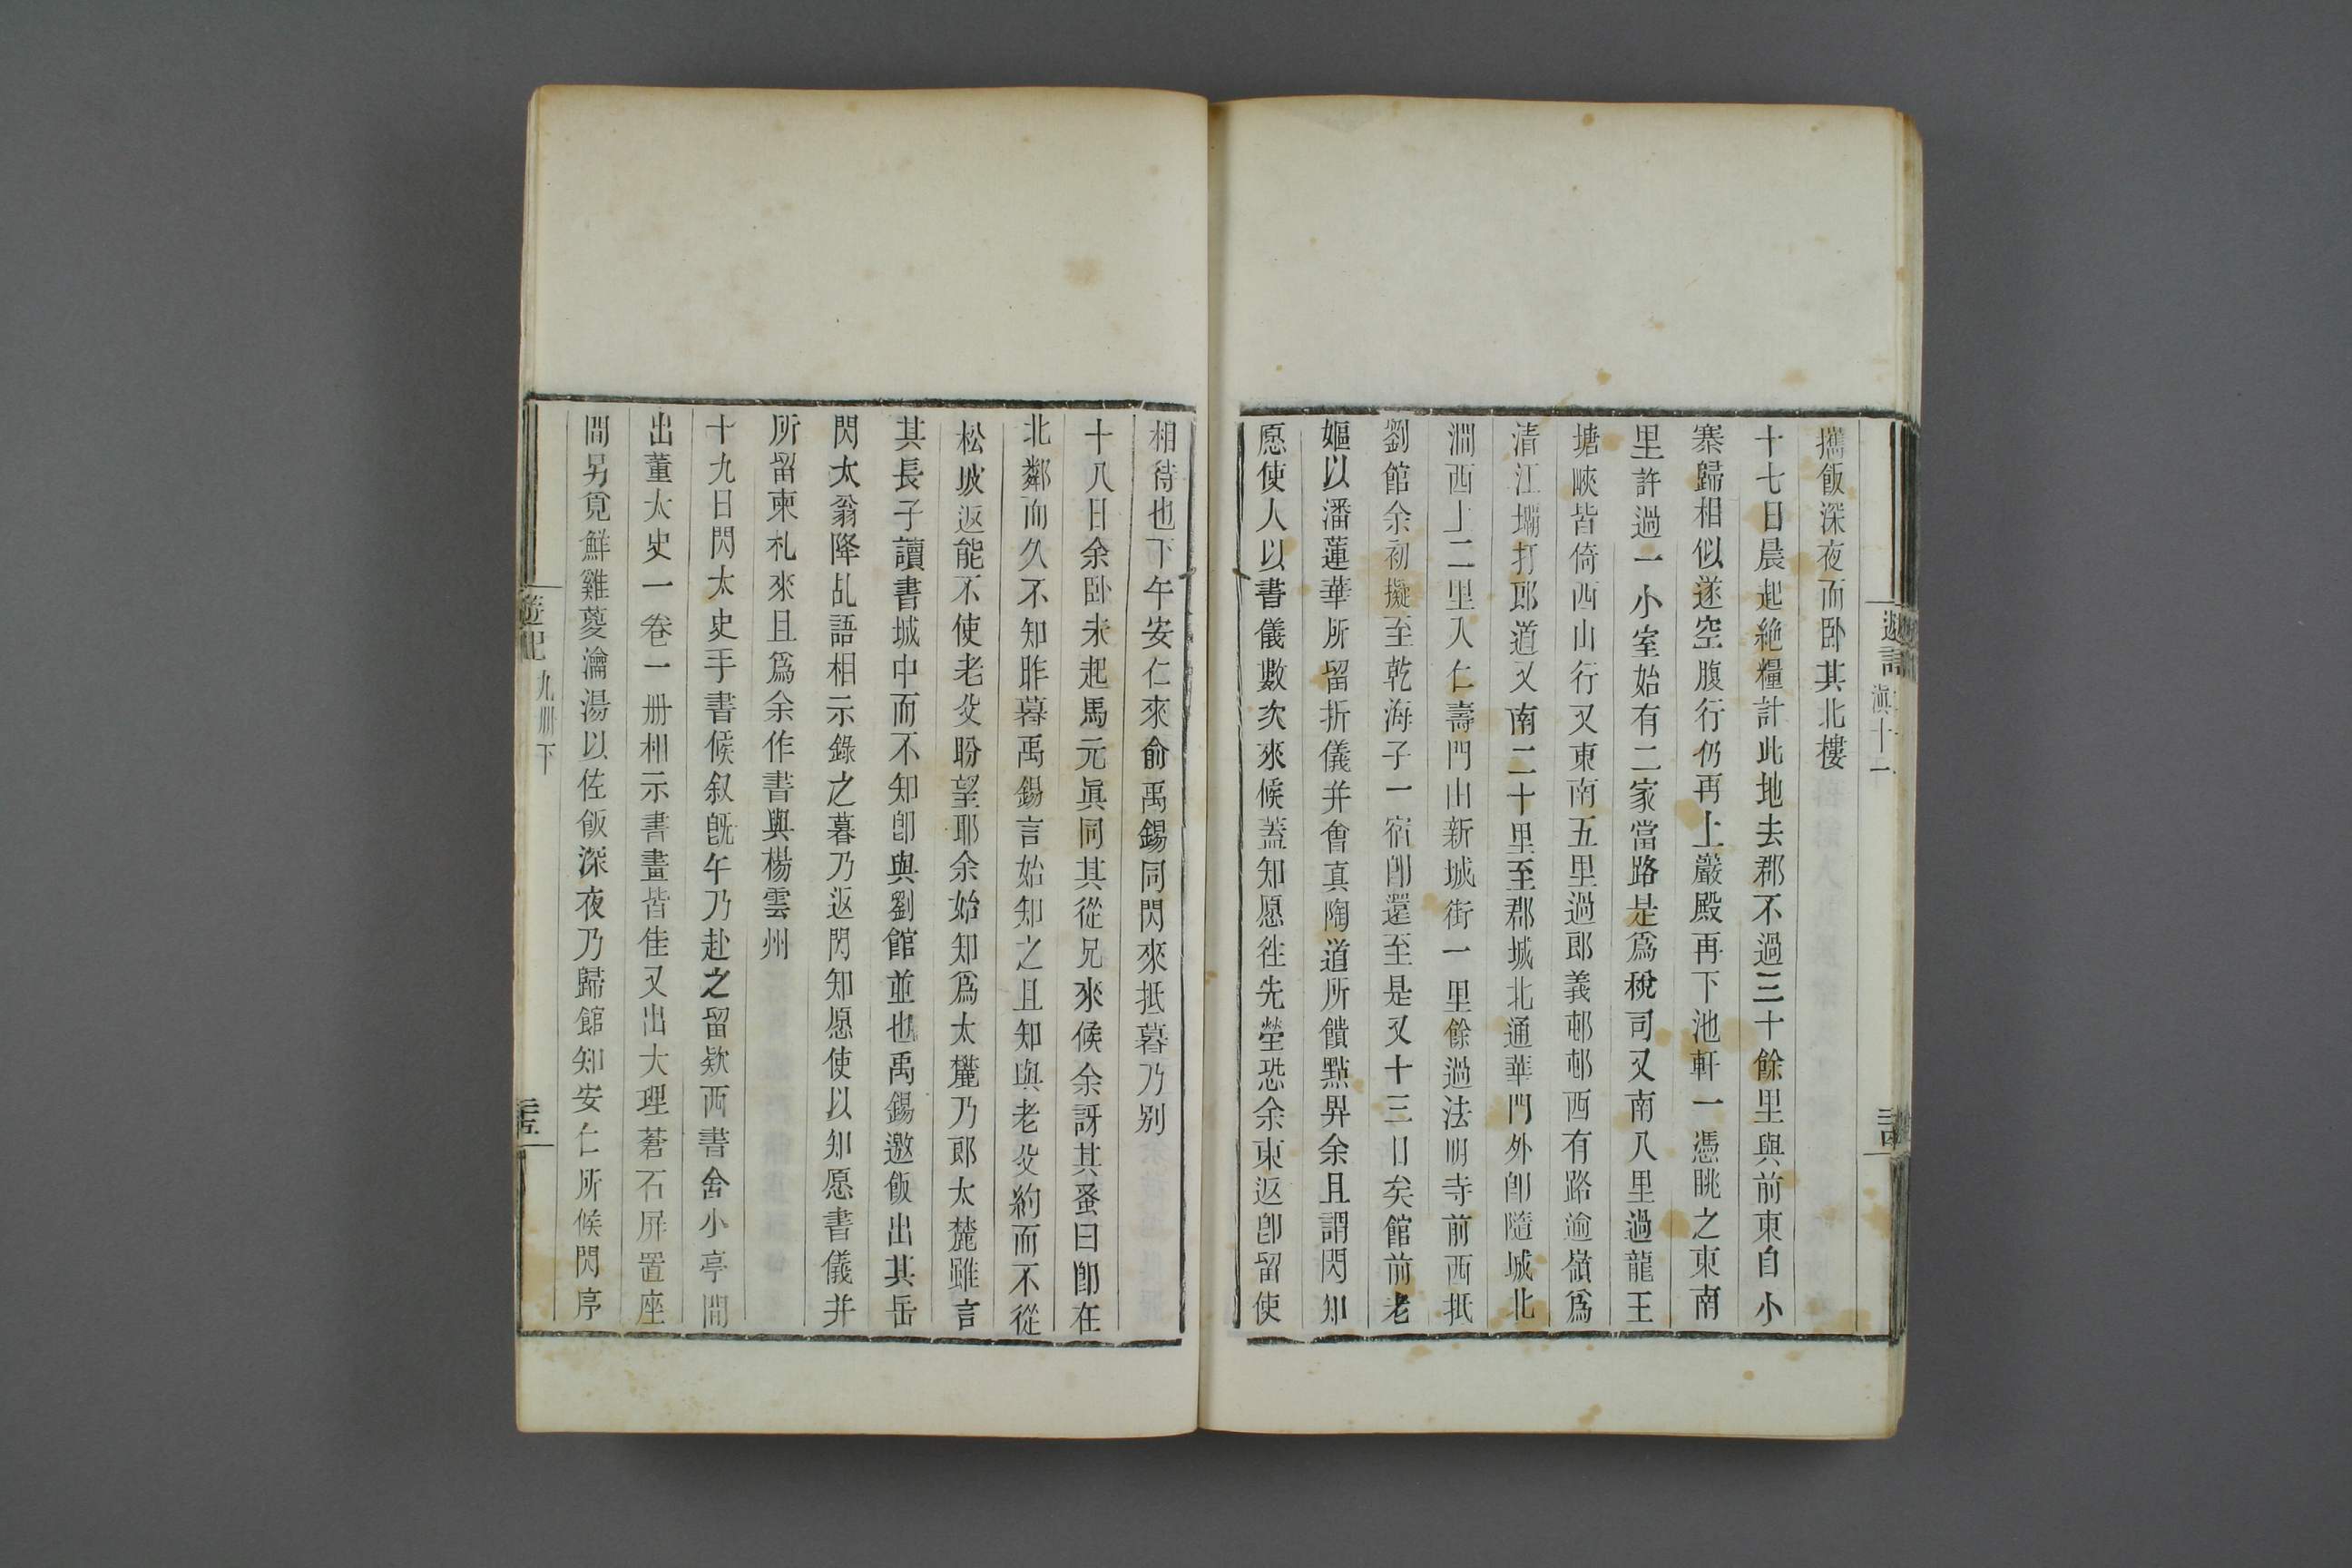 遊記
滇十一
攜飯深夜而卧其北樓
十七日晨起絶糧計此地去郡不過三十餘里與前東自小
寨歸相似遂空腹行仍再上巖殿再下池軒一憑眺之東南
里許過一小室始有二家當路是爲稅司又南八里過龍王
塘峽皆倚西山行又東南五里過郎義邨邨西有路逾嶺爲
清江壩打郎道又南二十里至郡城北通華門外卽隨城北
澗西上二里入仁壽門由新城街一里餘過法明寺前西抵
劉館余初擬至乾海子一宿卽還至是又十三日矣館前老
嫗以潘蓮華所留折儀并會真陶道所饋點畀余且謂閃知
愿使人以書儀數次來候蓋知愿徃先塋恐余東返卽留使
相待也下午安仁來俞禹錫同閃來抵暮乃别
十八日余卧未起馬元眞同其從兄來候余訝其蚤曰卽在
北鄰而久不知昨暮禹錫言始知之且知與老父約而不從
松坡返能不使老父盼望耶余始知爲太麓乃郎太麓雖言
其長子讀書城中而不知卽與劉館並也禹錫邀飯出其岳
閃太翁降乩語相示錄之暮乃返閃知愿使以知愿書儀并
所留柬札來且爲余作書與楊雲州
十九日閃太史手書候叙旣午乃赴之留欵西書舍小亭間
出董太史一卷一册相示書畫皆佳又出大理蒼石屏置座
間另覓鮮雞葼瀹湯以佐飯深夜乃歸館知安仁所候閃序
遊記
九册下
三五